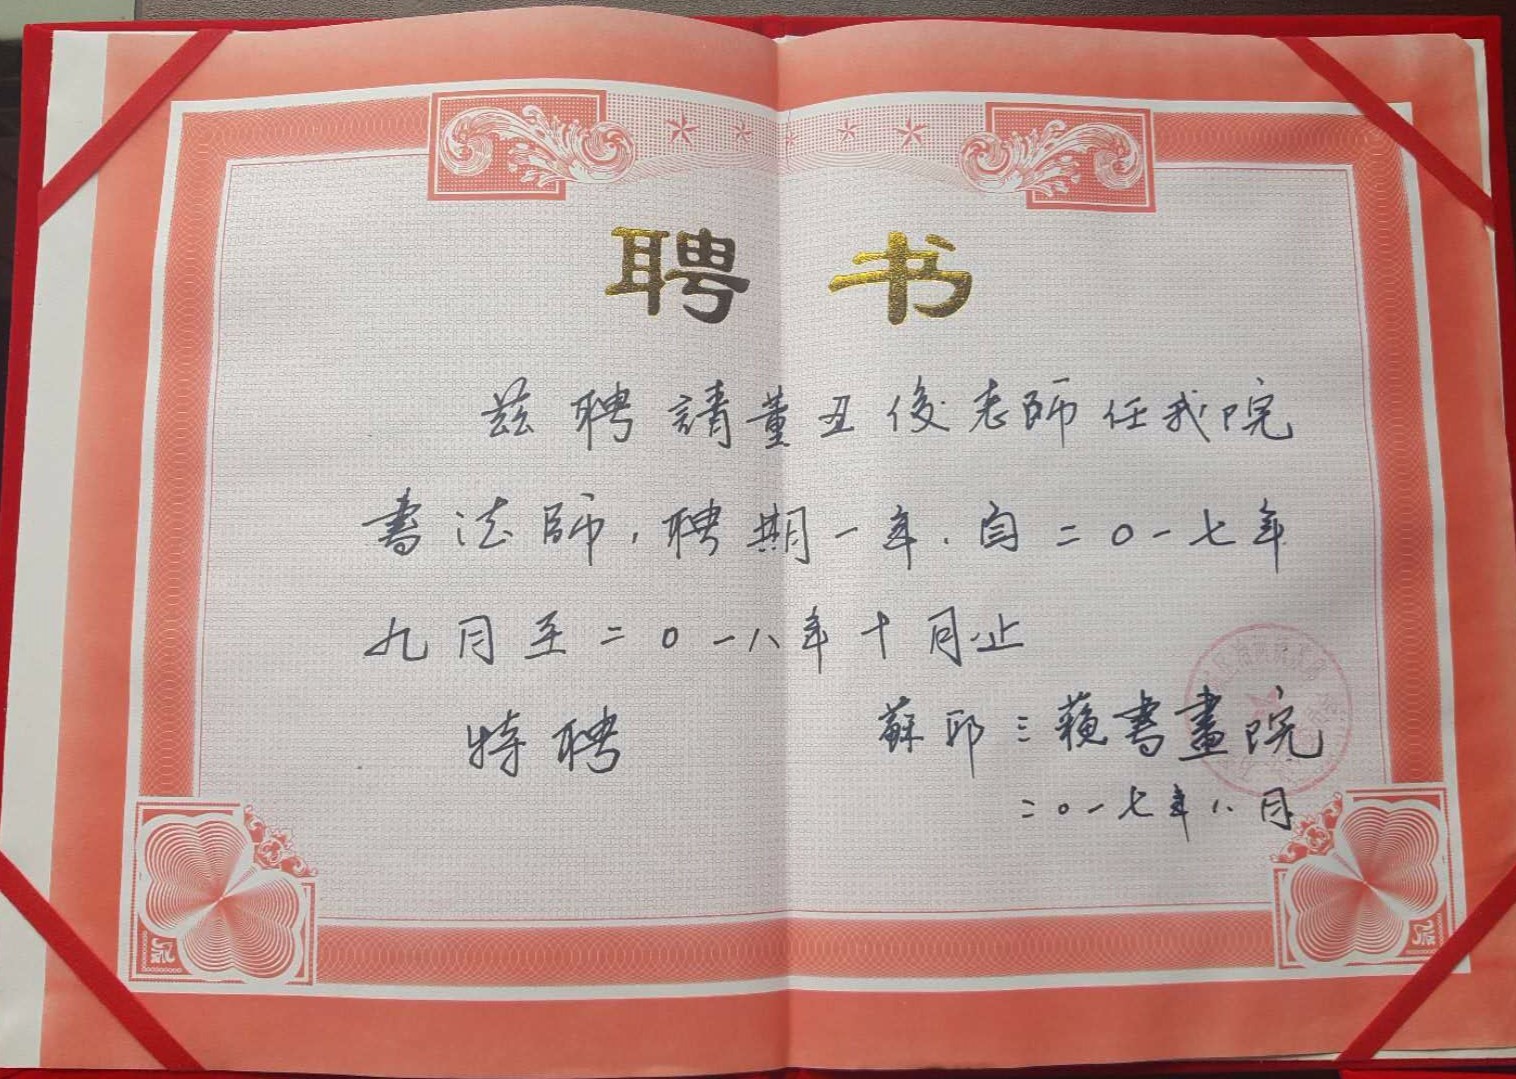 聘书
兹聘請董丑俊老師任我院
書法師，聘期一年．自二〇一七年
九月至二〇一八年十月止
特聘
蘇邳三蘋書畫院
二〇一七年八月